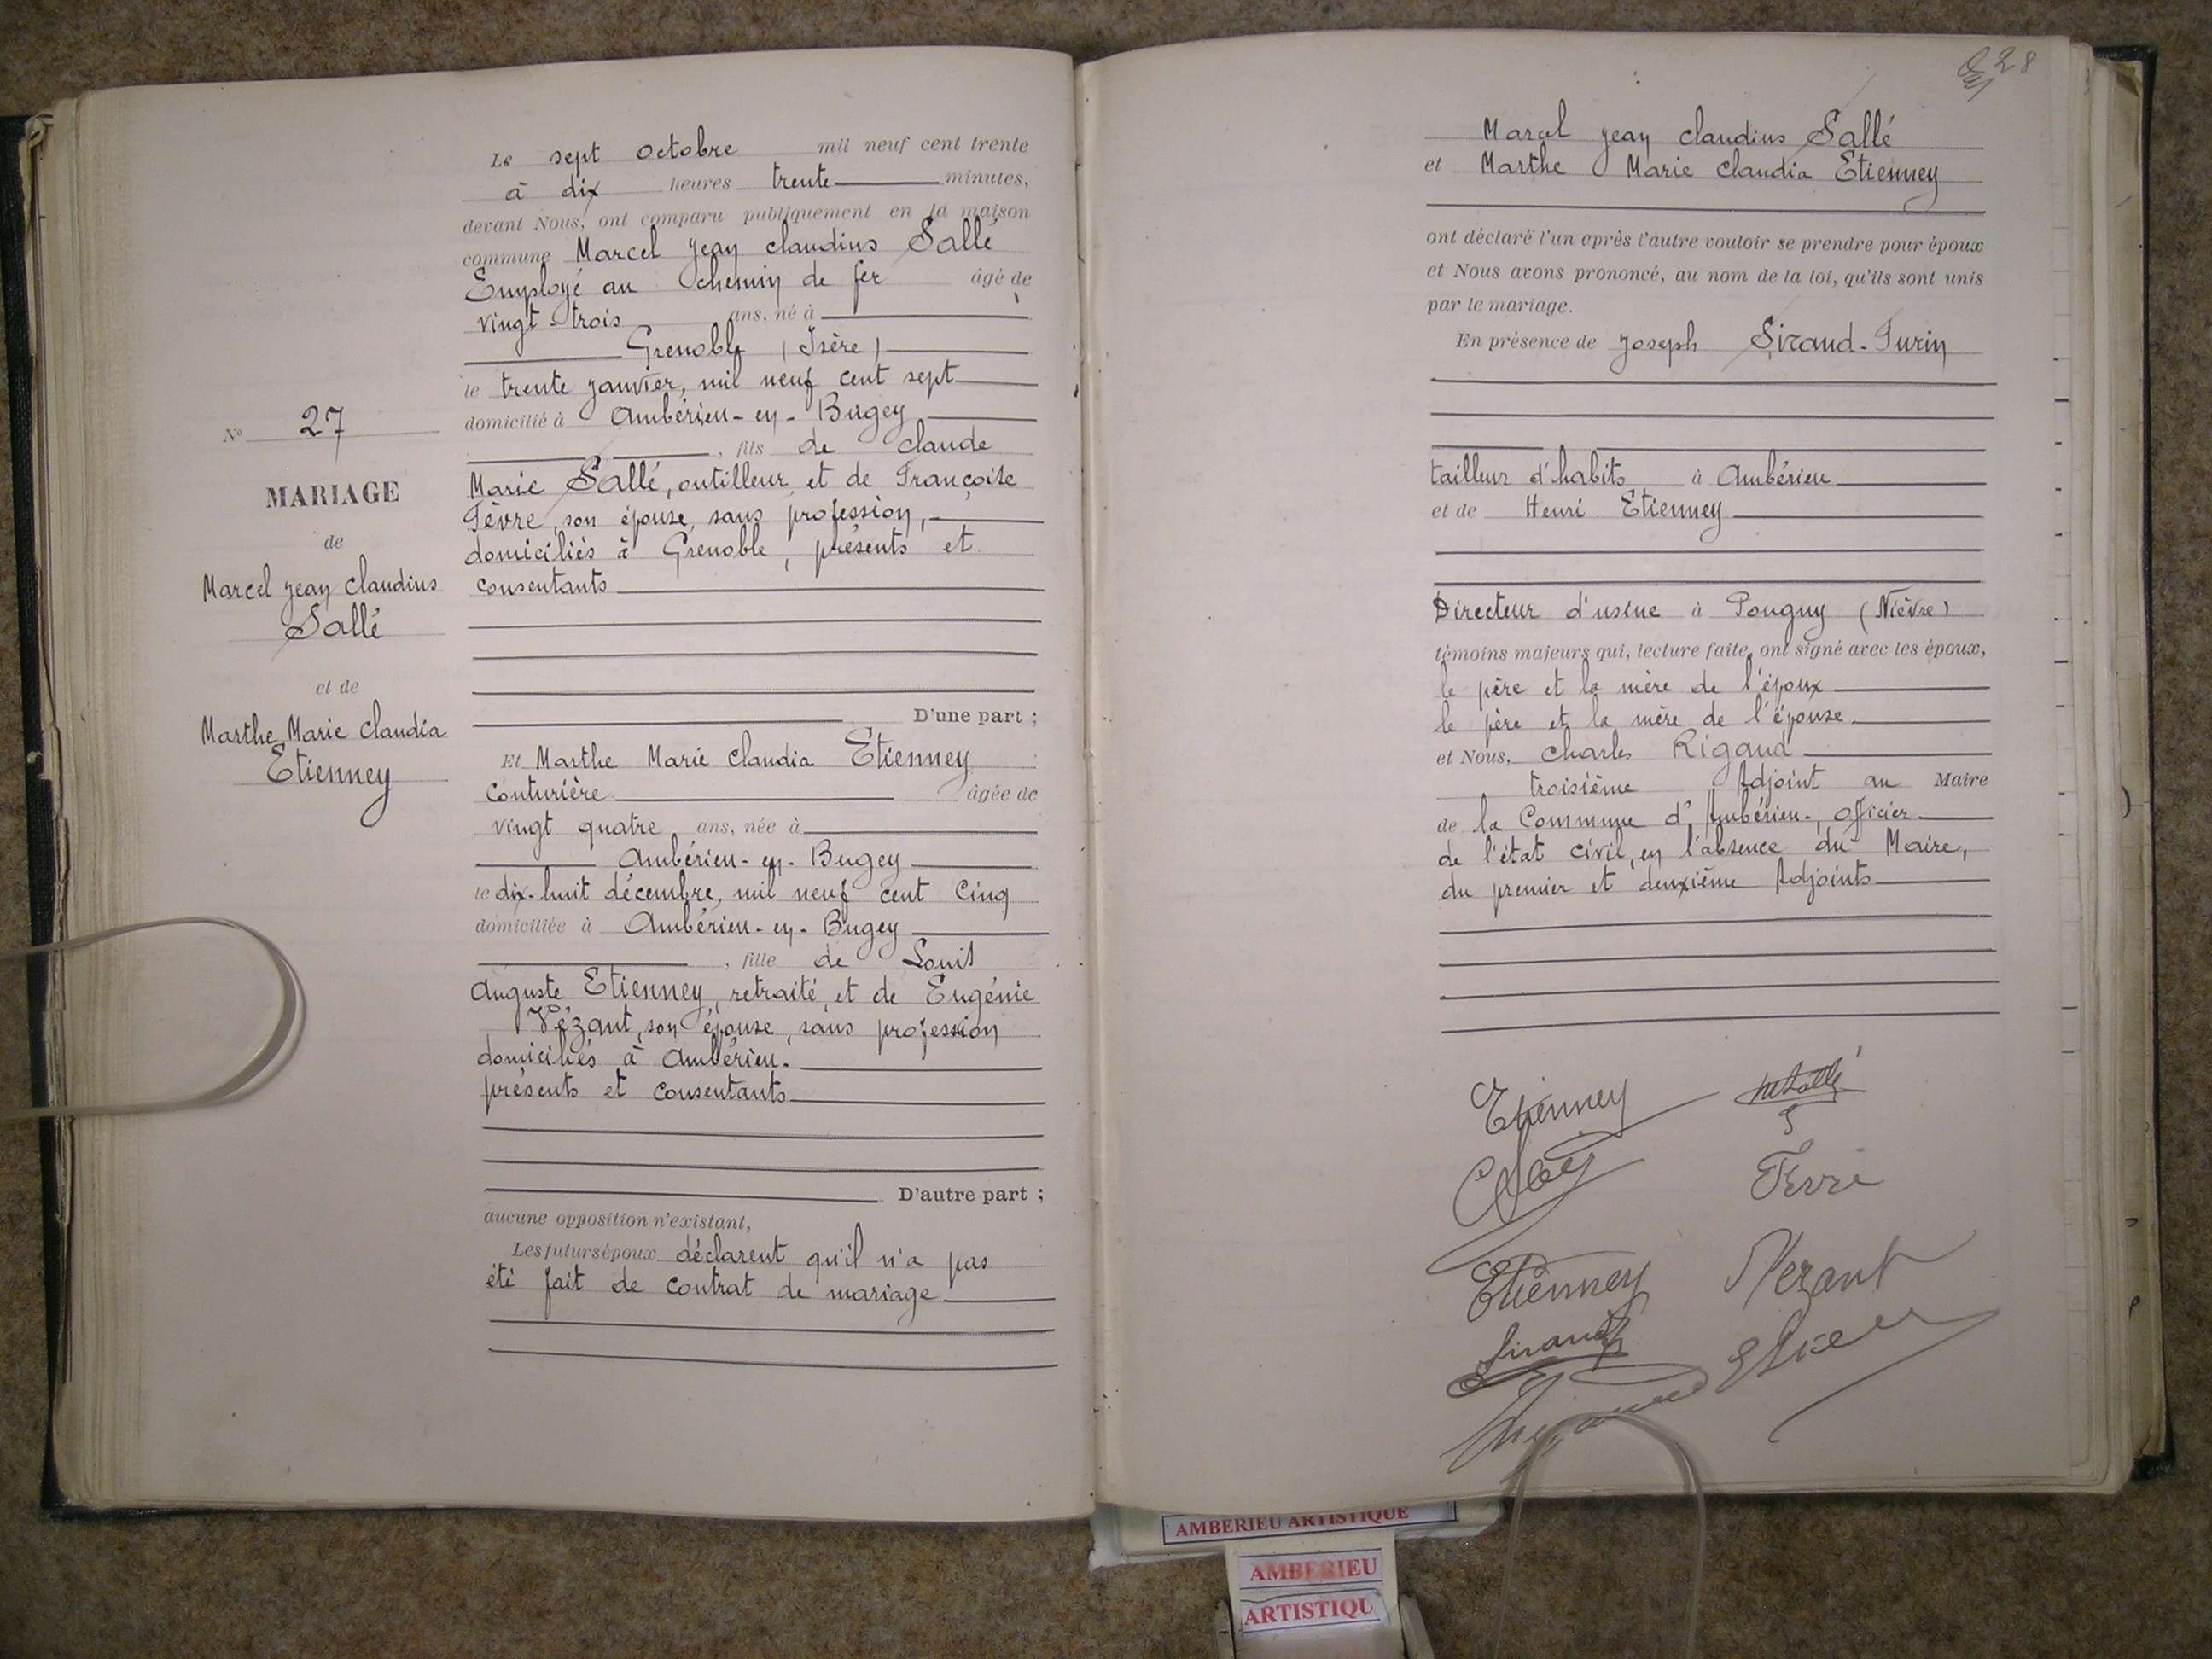 N° 27
MARIAGE
de
Marcel Jean Claudius
Sallé
et de
Marthe Marie Claudia
Etienney
Le sept octobre mil neuf cent trente
à dix heures trente minutes,
devant Nous, ont comparu publiquement en la maison
commune Marcel Jean Claudius Sallé
Employé au chemin de fer âgé de
vingt-trois ans, né à
Grenoble (Isère)
le trente janvier, mil neuf cent sept
domicilié à Ambérieu-en-Bugey
, fils de Claude
Marie Sallé, outilleur, et de Françoise
Fèvre, son épouse, sans profession,
domiciliés à Grenoble, présents et
consentants
D'une part ;
Et Marthe Marie Claudia Etienney
couturière âgée de
vingt quatre ans, née à
Ambérieu-en-Bugey
le dix-huit décembre, mil neuf cent cinq
domiciliée à Ambérieu-en-Bugey
, fille de Louis
Auguste Etienney, retraité, et de Eugénie
Vézant, son épouse, sans profession
domiciliés à Ambérieu.
présents et consentants
D'autre part ;
aucune opposition n'existant,
Les futurs époux déclarent qu'il n'a pas
été fait de contrat de mariage
28
Marcel Jean Claudius Sallé
et Marthe Marie Claudia Etienney
ont déclaré l'un après l'autre vouloir se prendre pour époux
et Nous avons prononcé, au nom de la loi, qu'ils sont unis
par le mariage.
En présence de Joseph Siraud-Turin
tailleur d'habits à Ambérieu
et de Henri Etienney
Directeur d'usine à Pougny (Nièvre)
témoins majeurs qui, lecture faite, ont signé avec les époux,
le père et la mère de l'époux
le père et la mère de l'épouse
et Nous, Charles Rigaud
troisième Adjoint au Maire
de la Commune d'Ambérieu-, officier
de l'état civil, en l'absence du Maire,
du premier et deuxième Adjoints
Etienney
Etienney Vezant
Siraud
AMBERIEU ARTISTIQUE
AMBERIEU
ARTISTIQU